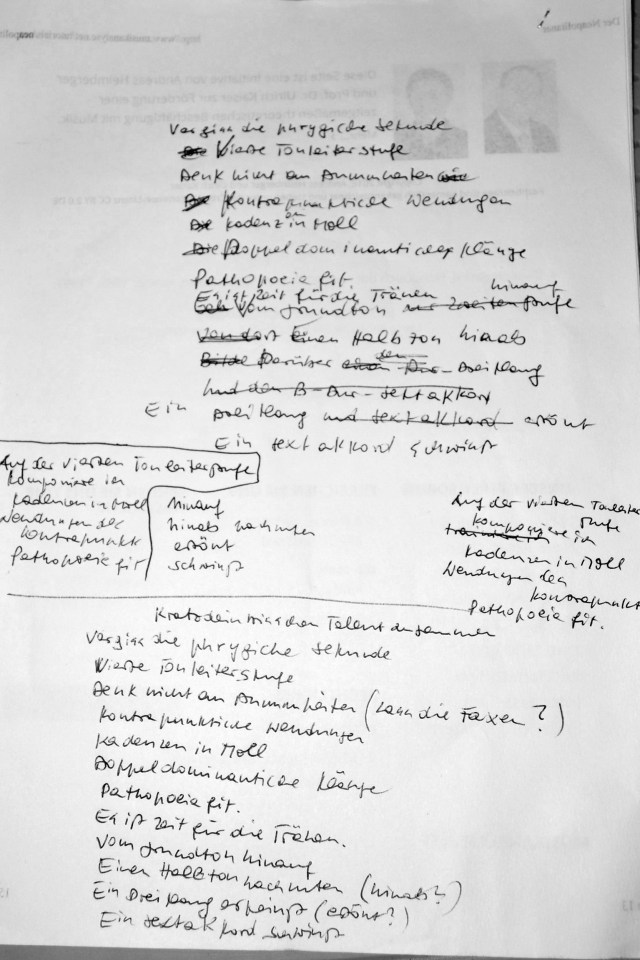 Der Neapolitaner
Diese Seite ist eine Initiative von Andreas Helmberger
und Prof. Dr. Ulrich Kaiser zur Förderung einer
zeitgemäßen theoretischen Beschäftigung mit Musik.
Vergiss die phrygiche Sekunde
Vierte Tonleiterstufe
Denk nicht an Dummheiten
Kontrapunktiche Wendungen
Die Kadenz in Moll
Die Doppeldominantiche Klänge
Pathopoeia fit.
Es ist Zeit für die Tränen hinauf
Vom Grundton zur zweiten Stufe
Von dort Einen Halbton hinab
Darüber den Dur-Dreiklang
Und den B-Dur-Sextakkord
Ein Dreiklang und Sextakkord ertönt
Ein Sextakkord schwingt
Auf der vierten Tonleiterstufe
komponiere ich
Kadenzen in Moll
Wendungen des
Kontrapunkts
Pathopoeia fit
hinauf
hinab nach unten
ertönt
schwingt
Auf der vierten Tonleiter
stufe
komponiere ich
Kadenzen in Moll
Wendungen des
Kontrapunkts
Pathopoeia fit.
Kratz dein bisschen Talent zusammen
Vergiss die phrygiche Sekunde
Vierte Tonleiterstufe
Denk nicht an Dummheiten (Lass die Faxen?)
Kontrapunktiche Wendungen
Kadenzen in Moll
Doppeldominantiche Klänge
Pathopoeia fit.
Es ist Zeit für die Tränen.
Vom Grundton hinauf
Einen Halbton nach unten (hinab?)
Ein Dreiklang erscheint (ertönt?)
Ein Sextakkord schwingt